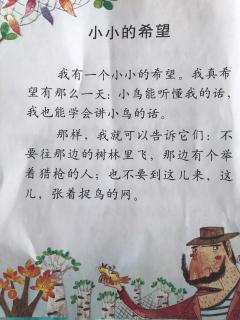 小小的希望
我有一个小小的希望。我真希
望有那么一天：小鸟能听懂我的话，
我也能学会讲小鸟的话。
那样，我就可以告诉它们：不
要往那边的树林里飞，那边有个举
着猎枪的人；也不要到这儿来，这
儿，张着捉鸟的网。